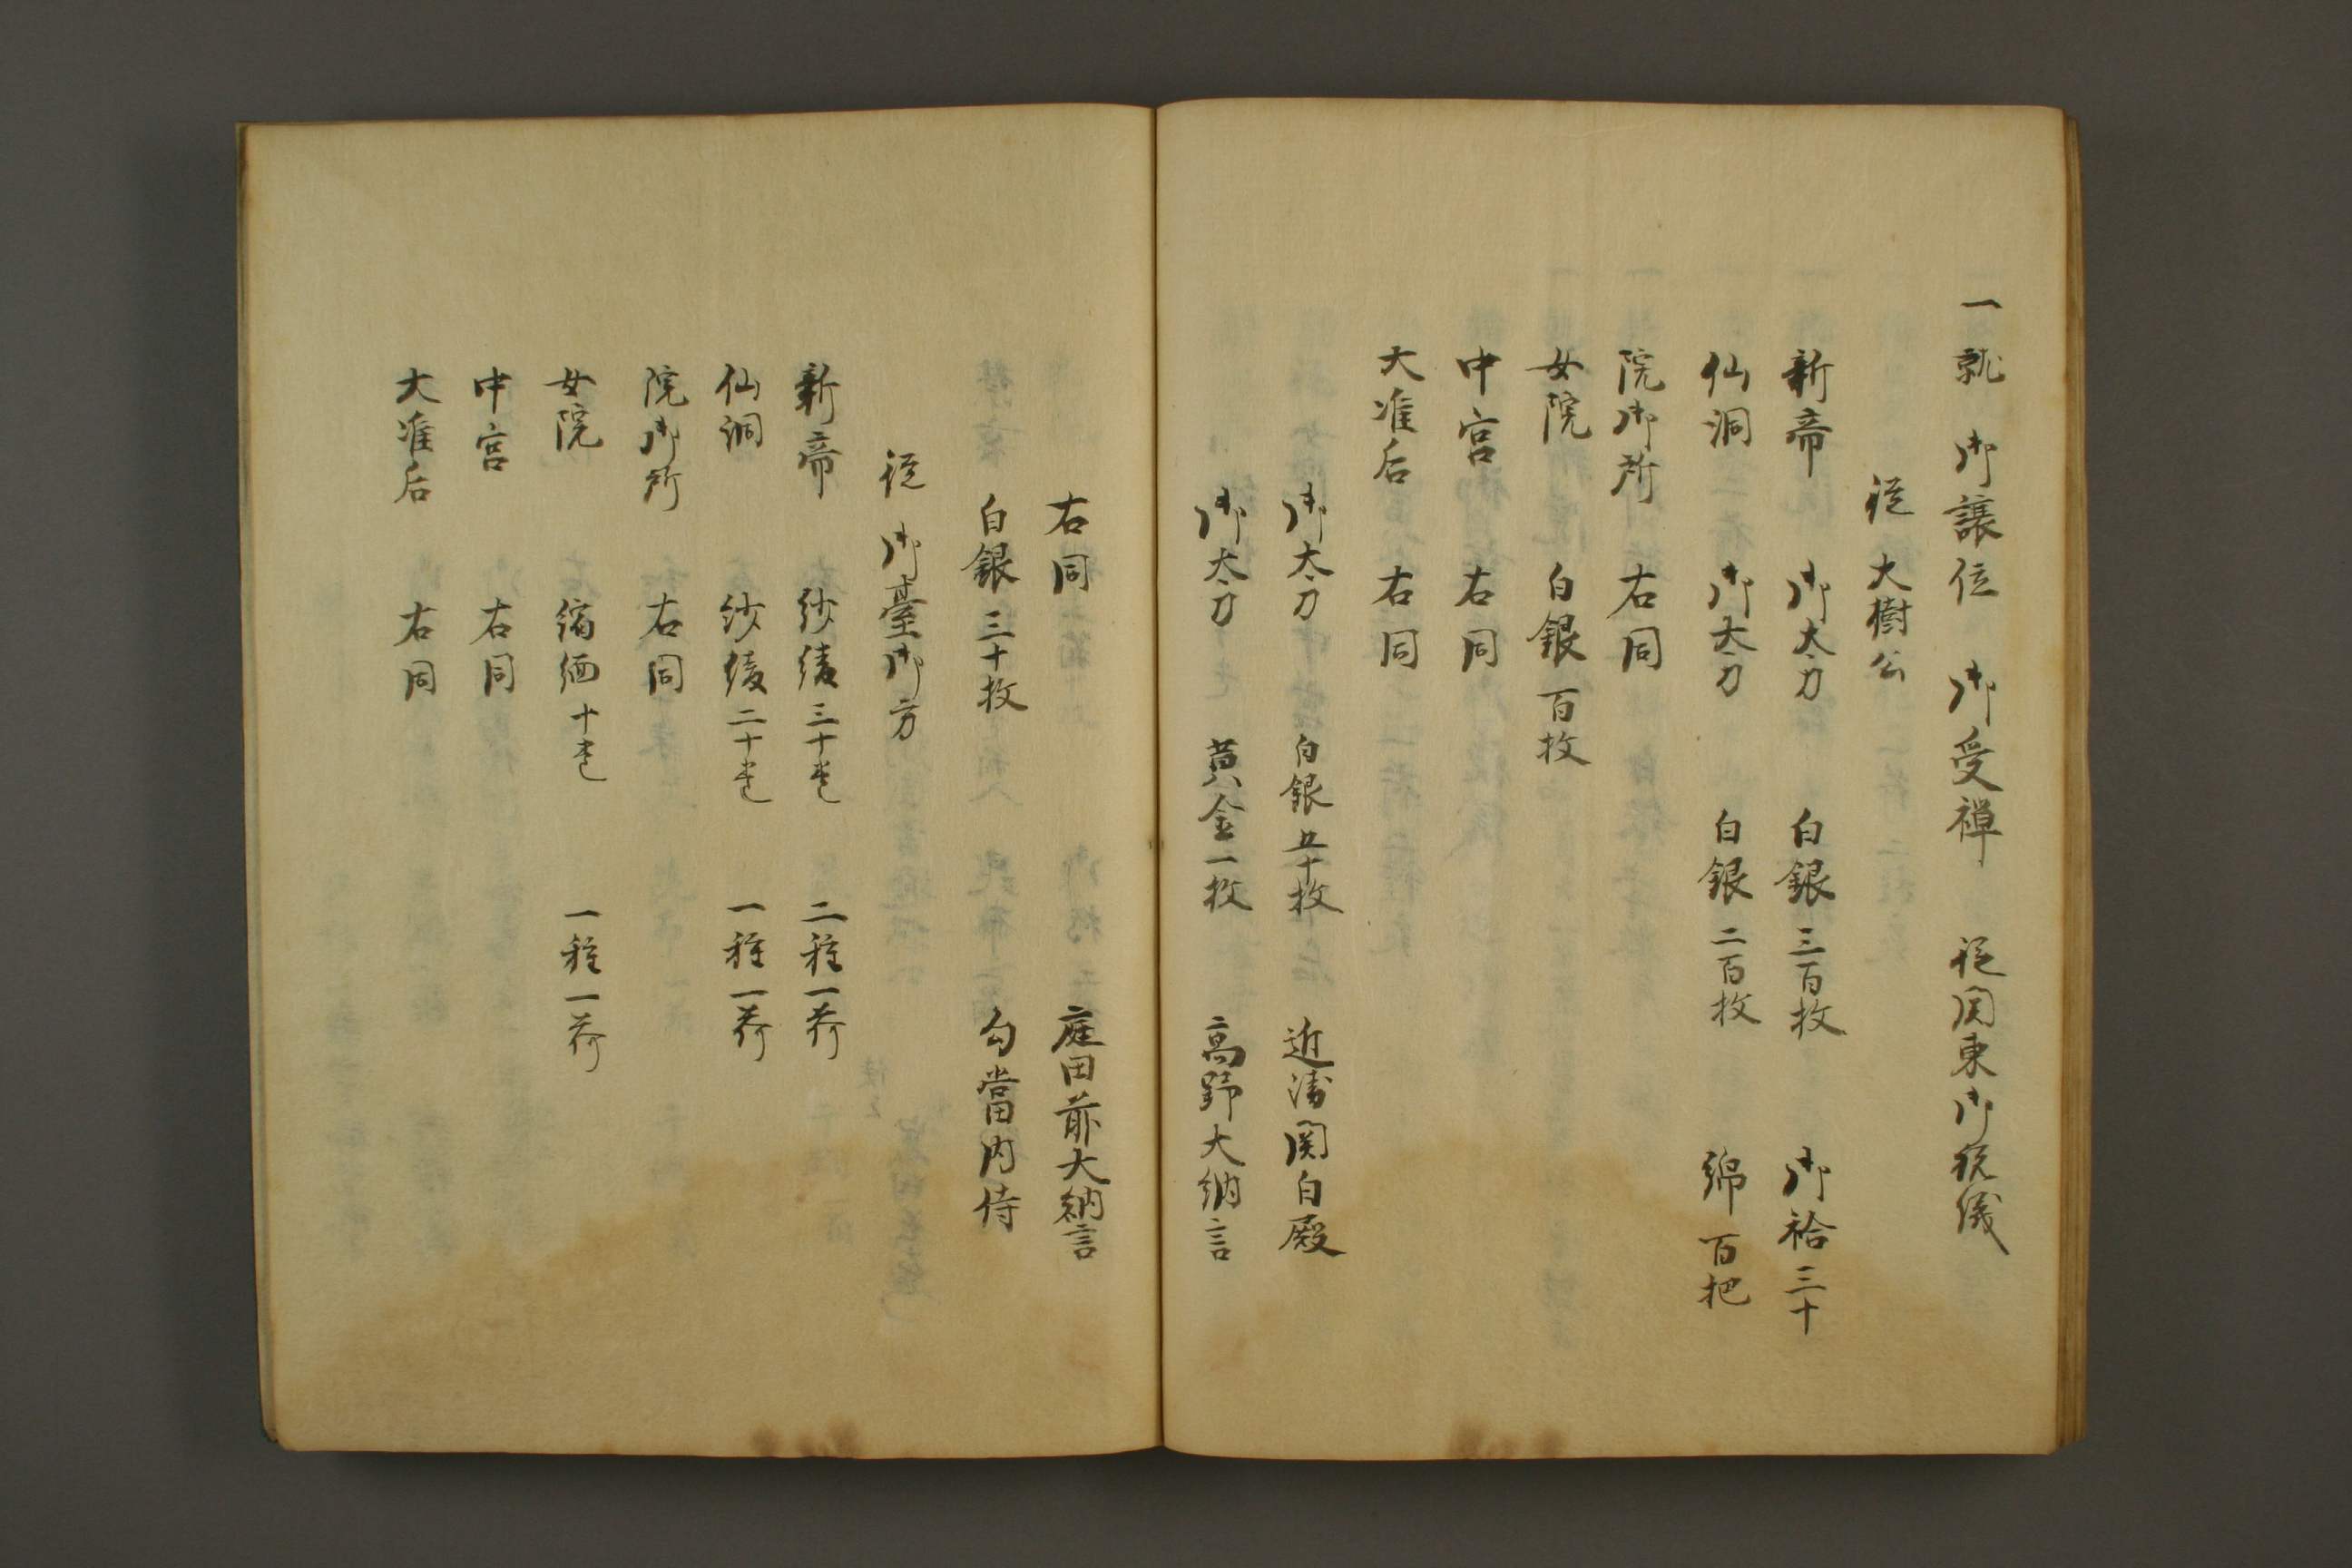 一就　御譲位　御受禅　従関東御祝儀
従　大樹公
新帝　御太刀　白銀三百枚　御袷三十
仙洞　御太刀　白銀二百枚　綿百把
院御所　右同
女院　白銀百枚
中宮　右同
大准后　右同
御太刀　白銀五十枚　近衛関白殿
御太刀　黄金一枚　高野大納言
右同　庭田前大納言
白銀三十枚　勾當内侍
従　御臺御方
新帝　紗綾三十巻　二種一荷
仙洞　紗綾二十巻　一種一荷
院御所　右同
女院　縮緬十巻　一種一荷
中宮　右同
大准后　右同